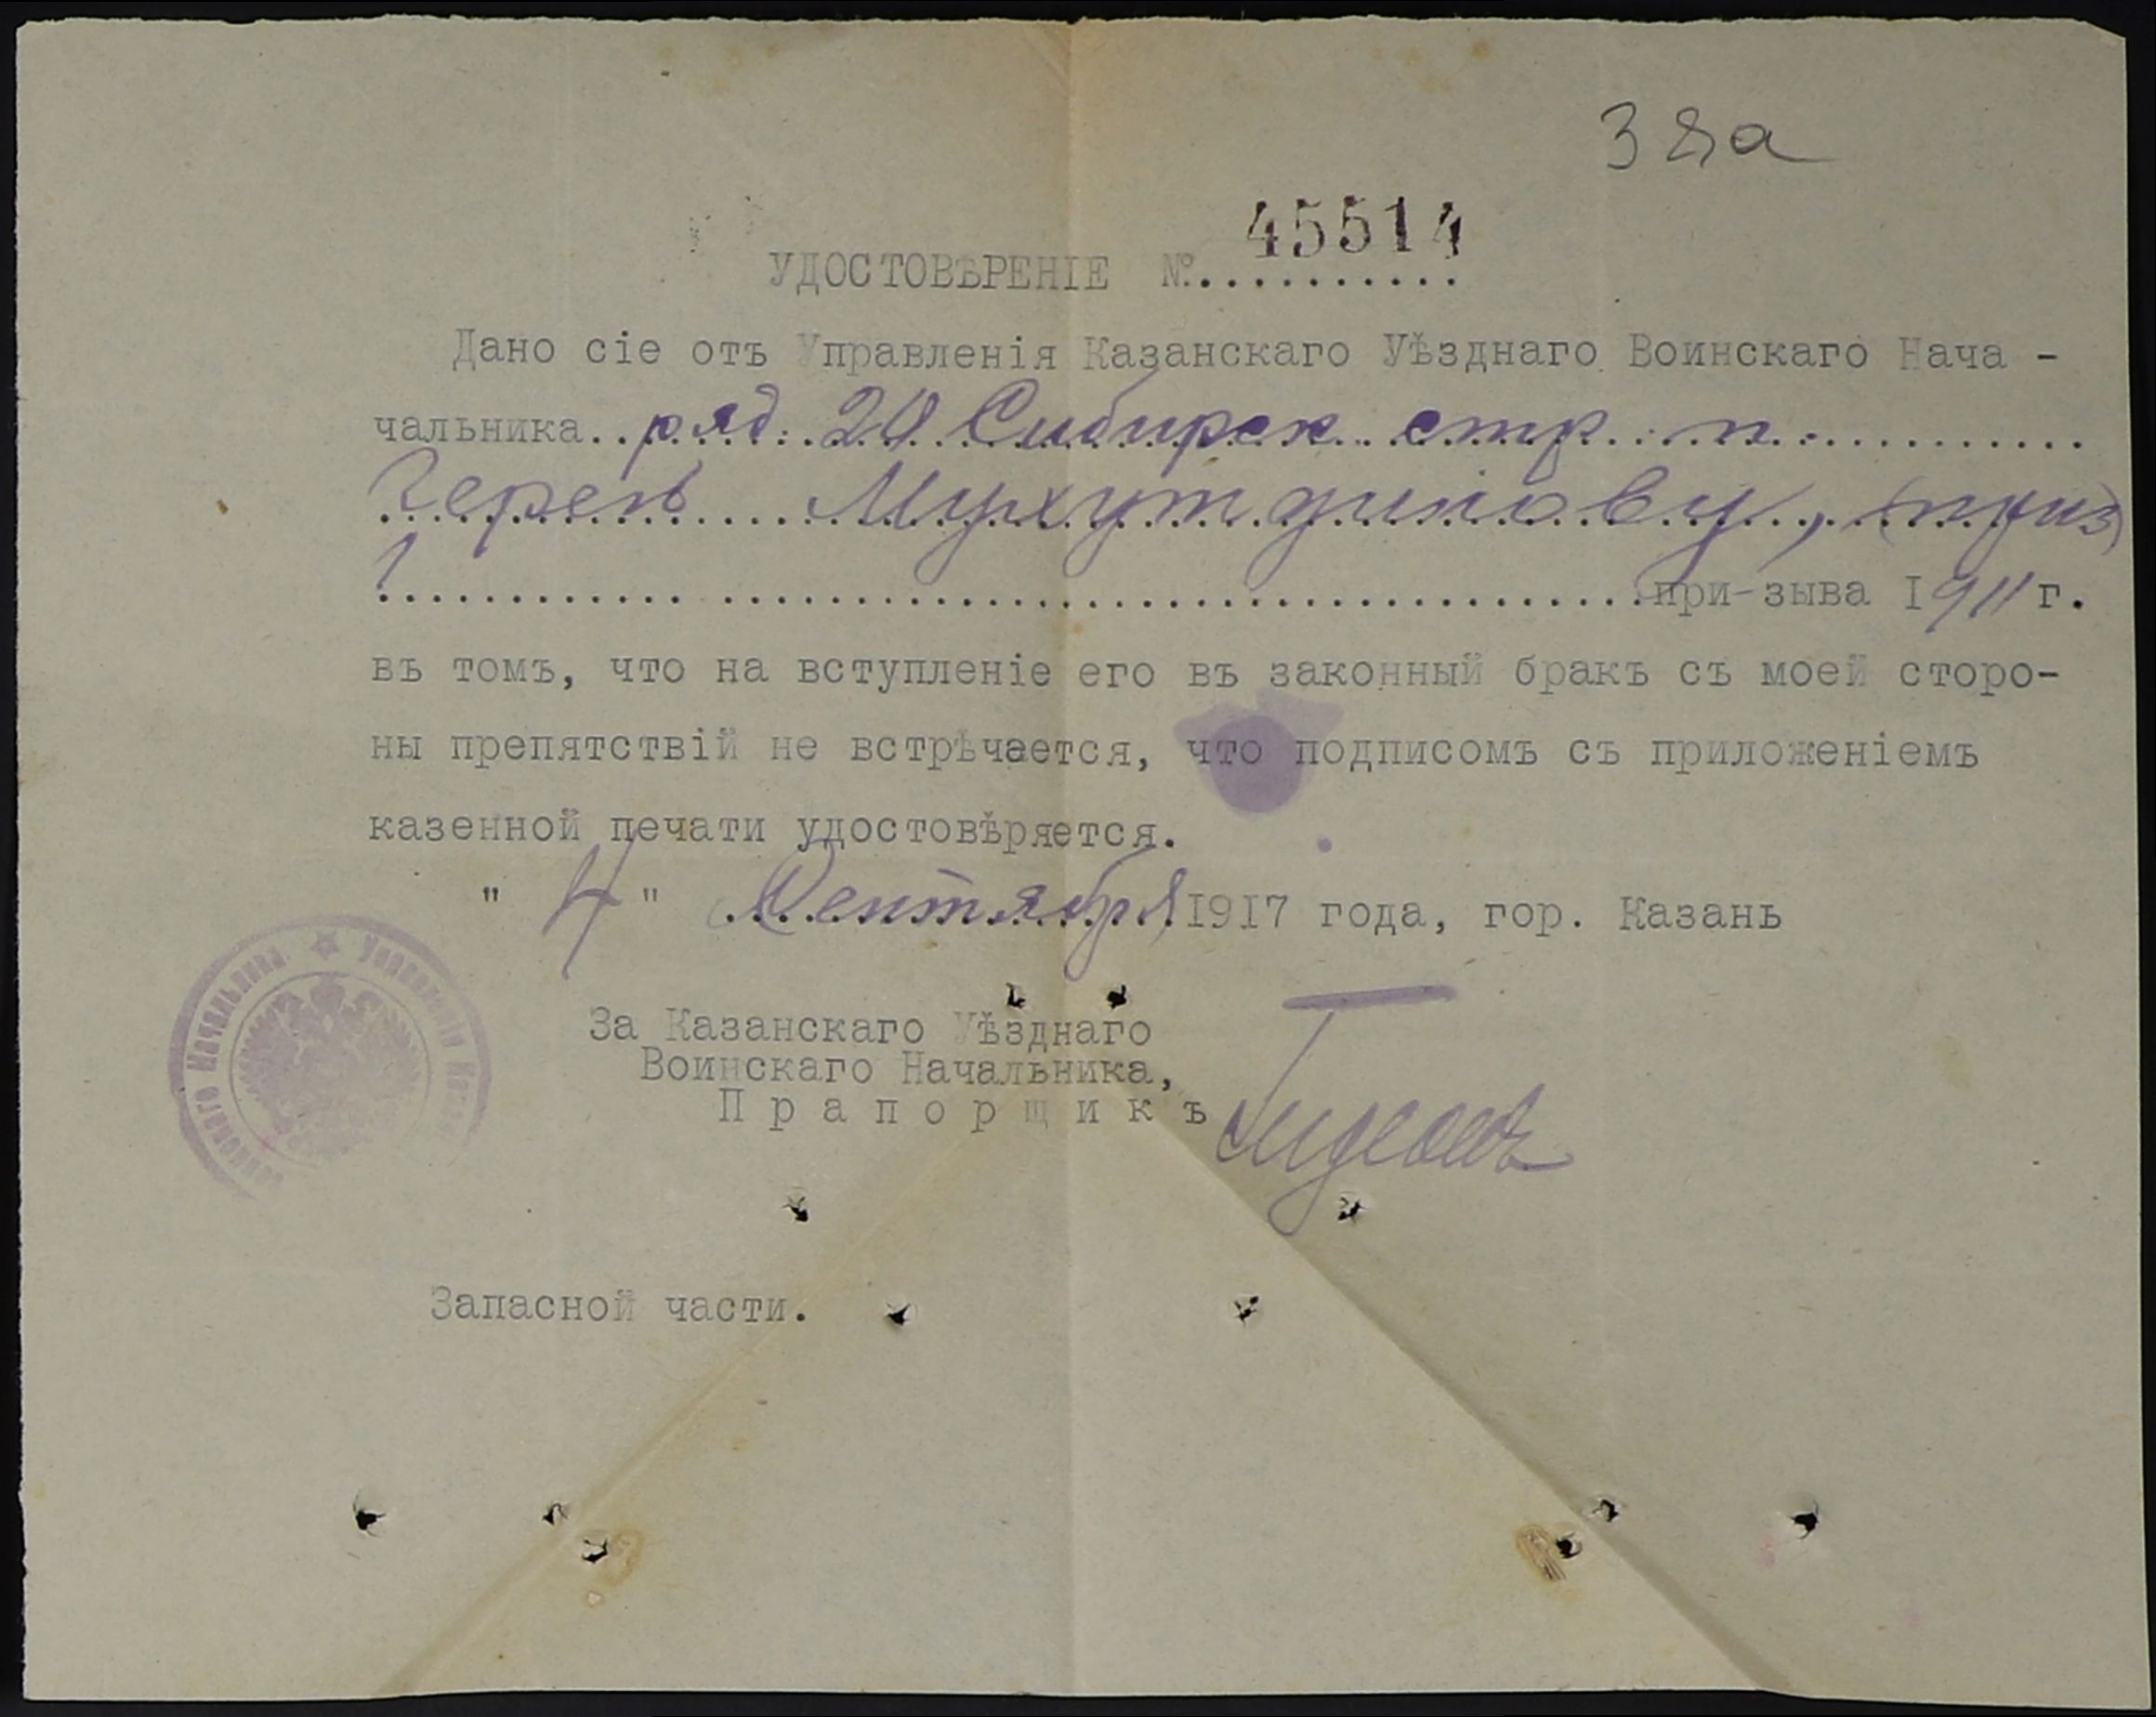 45514
УДОСТОВѢРЕНІЕ №...........
Дано сіе отъ Управленія Казанскаго Уѣзднаго Воинскаго Нача -
чальника..ряд. 20 Сибирск. стр. п.
Мухутдинову, (приз)
при-зыва 1911 г.
въ томъ, что на вступленіе его въ законный бракъ съ моей сторо-
ны препятствій не встрѣчается, что подписомъ съ приложеніемъ
казенной печати удостовѣряется.
" 4 " Сентября 1917 года, гор. Казань
За Казанскаго Уѣзднаго
Воинскаго Начальника,
Прапорщикъ
Управленія Начальника
Запасной части.